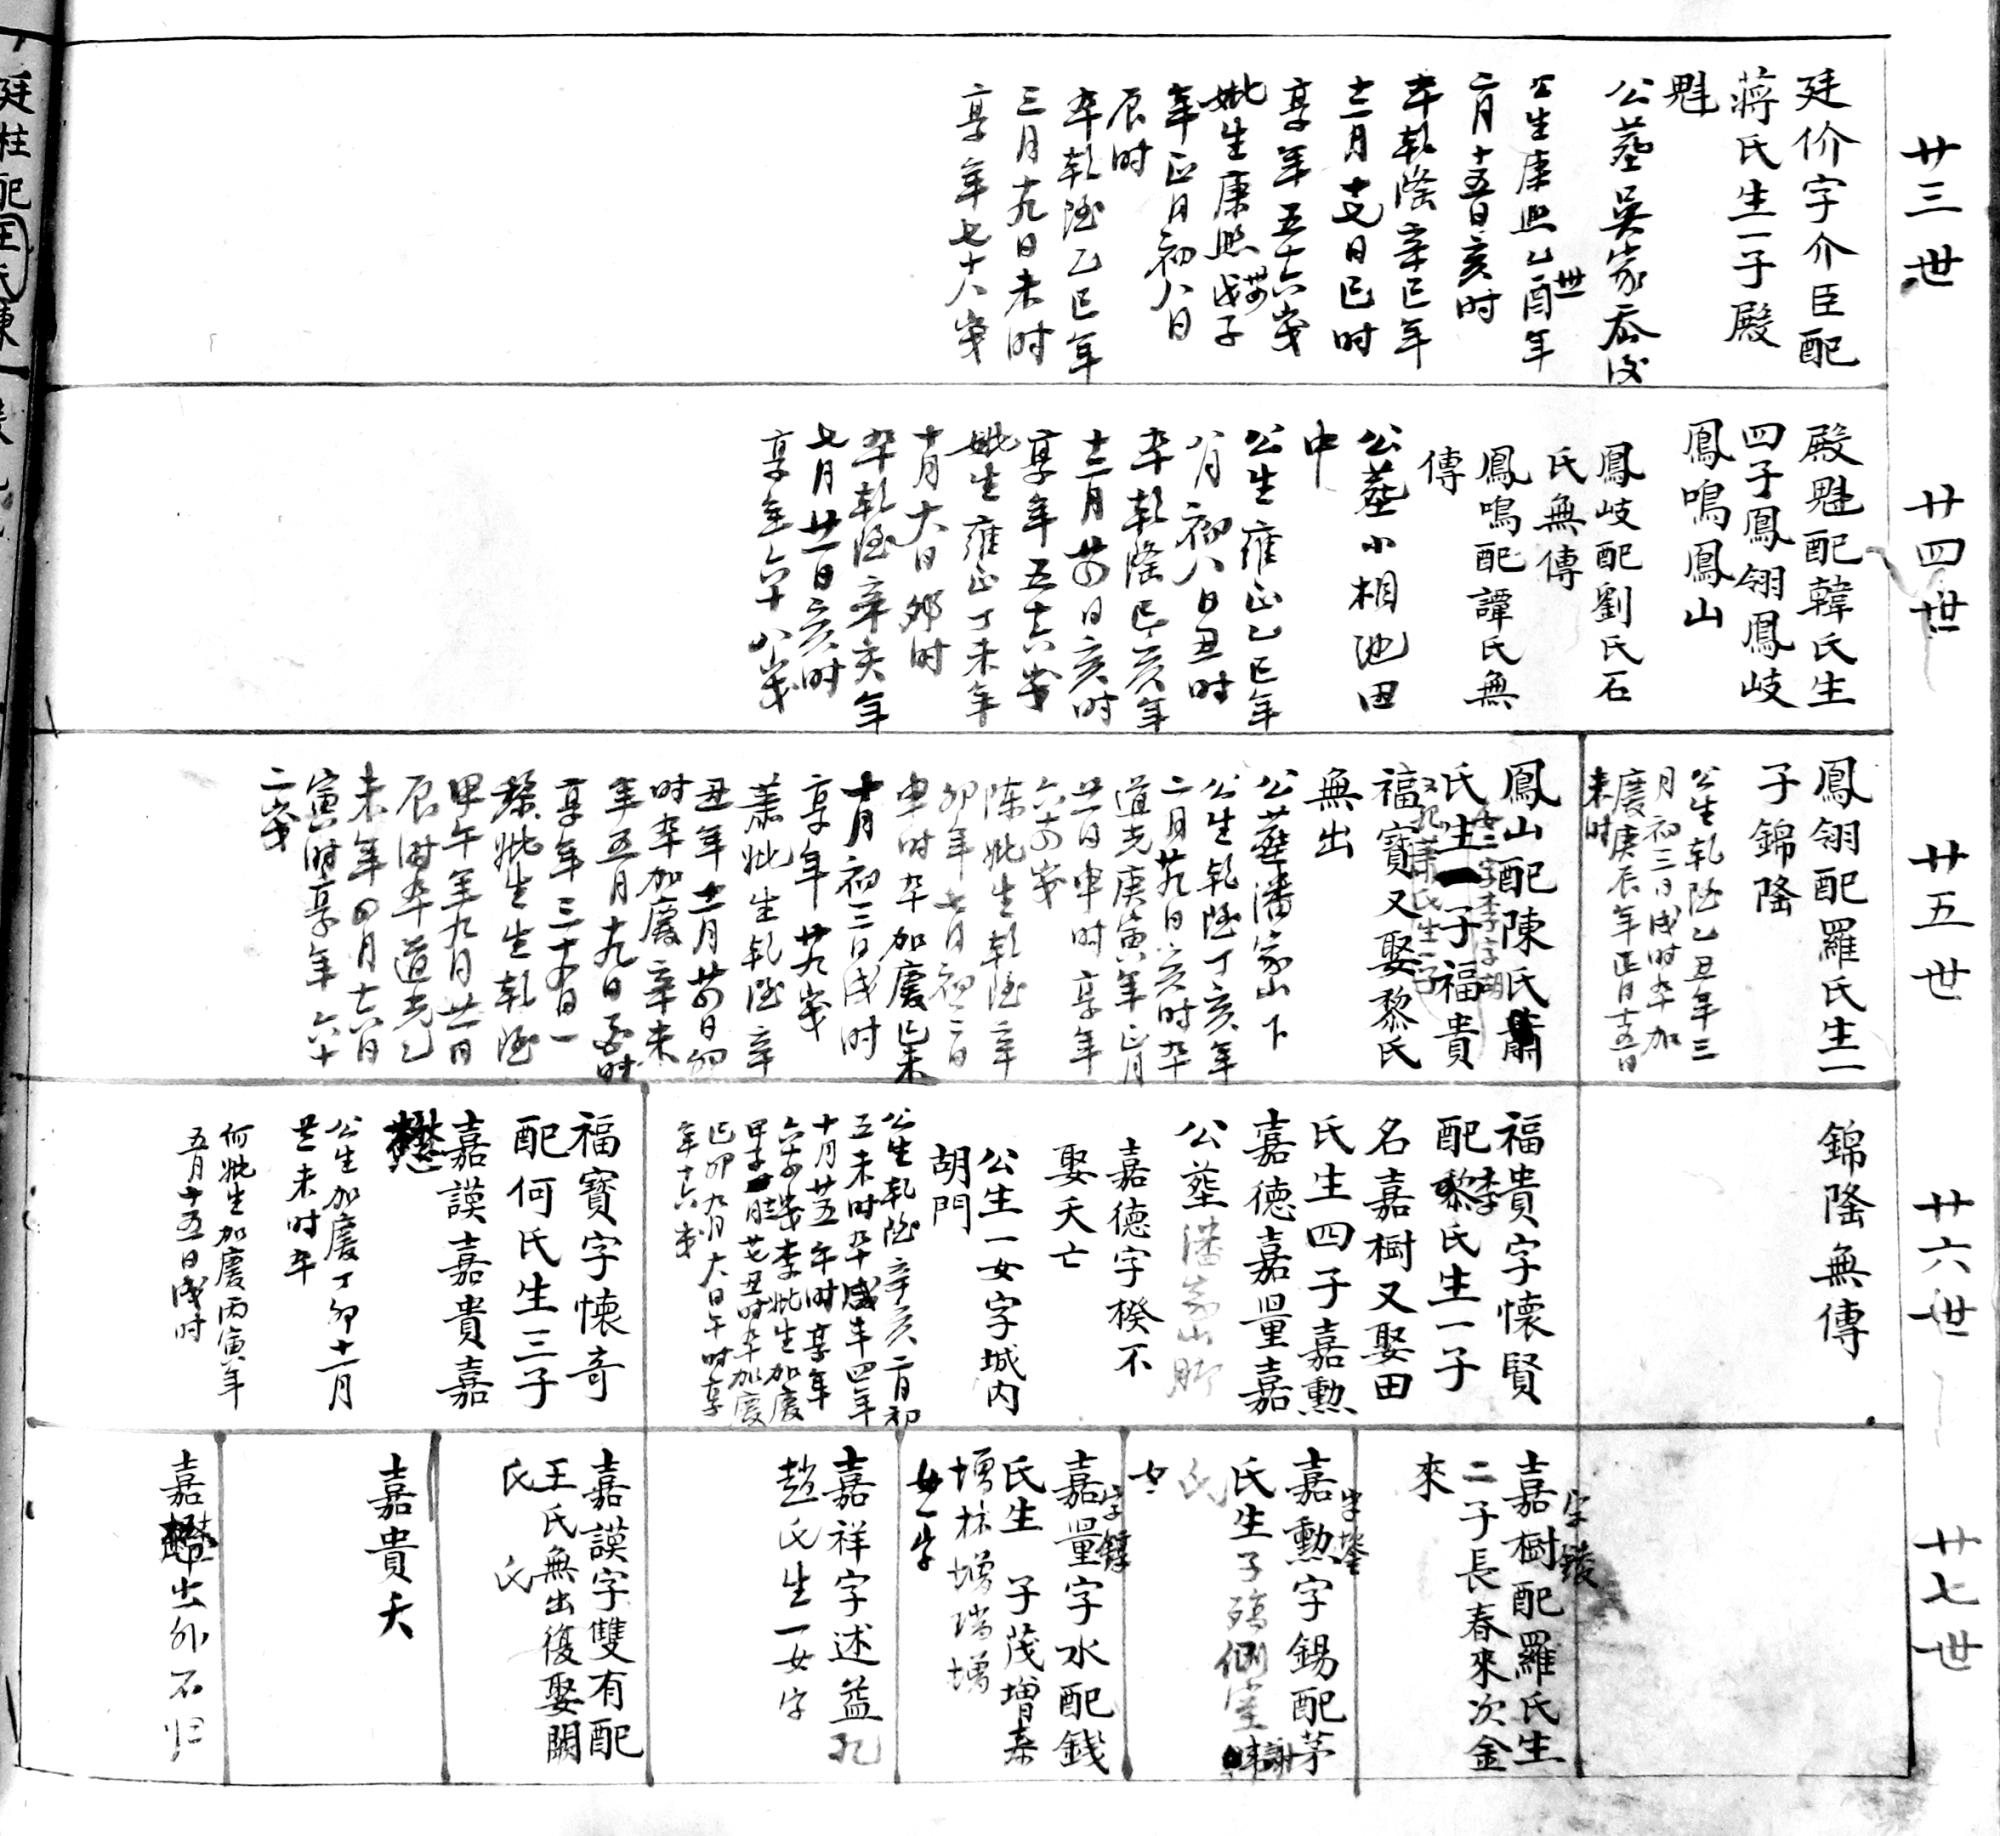 廿三世
廷价字介臣配
蔣氏生一子殿
魁
公塟吳家岙後
公生康熙乙酉年
二月十五日亥时
卒乾隆辛巳年
十二月十七日巳时
享年五十六岁
妣生康熙戊子
年正月初八日
辰时
卒乾隆乙巳年
三月十九日未时
享年七十八岁
廿四世
殿魁配韓氏生
四子鳳翎鳳岐
鳳鳴鳳山
鳳岐配劉氏石
氏無傳
鳳鳴配譚氏無
傳
公塟小相池田
中
公生雍正乙巳年
八月初八日丑时
卒乾隆己亥年
十二月廿四日亥时
享年五十六岁
妣生雍正丁未年
十月十六日卯时
卒乾隆辛亥年
七月廿一日亥时
享年六十八岁
廿五世
鳳翎配羅氏生一
子錦隆
公生乾隆乙丑年三
月初三日戌时卒加
慶庚辰年正月十五日
未时
鳳山配陳氏蕭
氏生一子福貴
福寶又娶黎氏
無出
公葬潘家山下
公生乾隆丁亥年
二月廿九日亥时卒
道光庚寅年正月
廿一日申时享年
六十四岁
陈妣生乾隆辛
卯年七月初二日
申时卒加慶己未
十月初三日戌时
享年廿九岁
萧妣生乾隆辛
丑年十一月廿四日卯
时卒加慶辛未
年五月十九日子时
享年三十一
黎妣生生乾隆
甲午年九月廿一日
辰时卒道光乙
未年四月十六日
寅时享年六十
二岁
廿六世
錦隆無傳
福貴字懷賢
配李氏生一子
名嘉樹又娶田
氏生四子嘉勲
嘉德嘉量嘉
公塟潘家山脚
嘉德字楑不
娶夭亡
公生一女字城内
胡門
公生乾隆辛亥二月初
五未时卒咸丰四年
十月廿五午时享年
六十四岁李妣生加慶
甲子月廿七丑时卒加慶
己卯九月六日午时享
年十六岁
福寶字懷奇
配何氏生三子
嘉謨嘉貴嘉
懋
公生加慶丁卯十一月
廿未时卒
何妣生加慶丙寅年
五月十五日戌时
廿七世
嘉樹配羅氏生
二子長春來次金
來
嘉勲字錫配茅
氏生子
氏
女
嘉量字水配錢
氏生 子茂增泰
增林增瑞增
女一字
嘉祥字述益配
趙氏生一女字
嘉謨字雙有配
王氏無出復娶關
氏 氏
嘉貴夭
嘉懋出外不归